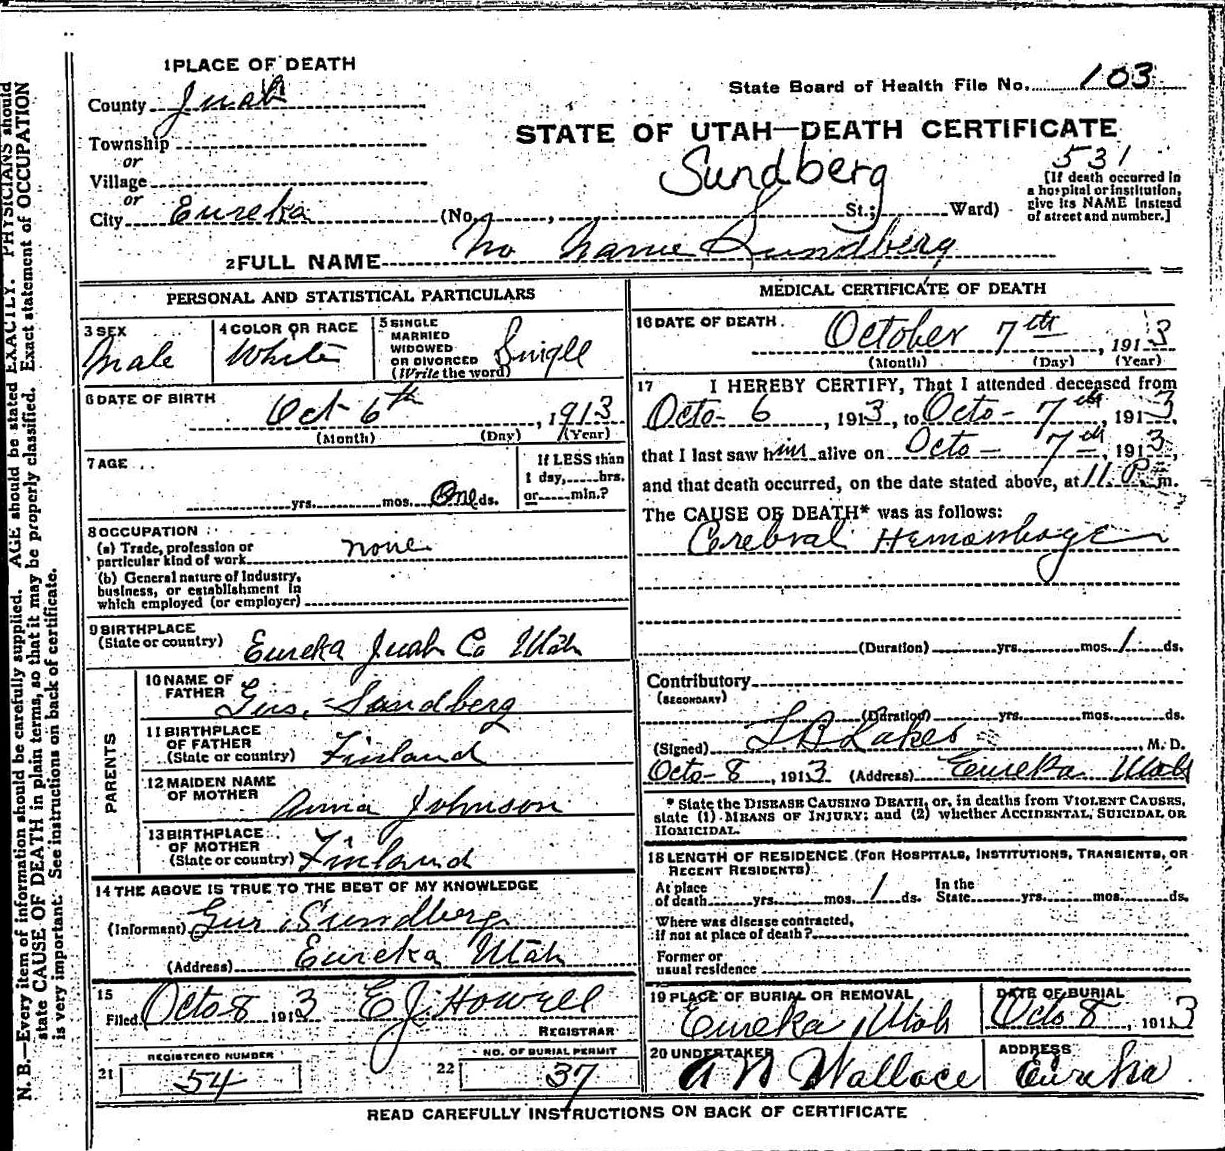 1 PLACE OF DEATH
County Juab
State Board of Health File No. 103
Township
or
Village
or
City Eureka
STATE OF UTAH—DEATH CERTIFICATE
Sundberg
531
(No. , St.; Ward)
[If death occurred in
a hospital or institution,
give its NAME instead
of street and number.]
2 FULL NAME No Name Sundberg
PERSONAL AND STATISTICAL PARTICULARS
3 SEX
Male
4 COLOR OR RACE
White
5 SINGLE
MARRIED
WIDOWED
OR DIVORCED
(Write the word)
Single
6 DATE OF BIRTH
Oct 6th , 1913
(Month) (Day) (Year)
7 AGE
yrs. mos. One ds.
If LESS than
1 day, hrs.
or min.?
8 OCCUPATION
(a) Trade, profession or
particular kind of work none
(b) General nature of industry,
business, or establishment in
which employed (or employer)
9 BIRTHPLACE
(State or country) Eureka Juab Co Utah
PARENTS
10 NAME OF
FATHER Gus. Sundberg
11 BIRTHPLACE
OF FATHER
(State or country) Finland
12 MAIDEN NAME
OF MOTHER Anna Johnson
13 BIRTHPLACE
OF MOTHER
(State or country) Finland
14 THE ABOVE IS TRUE TO THE BEST OF MY KNOWLEDGE
(Informant) Gus Sundberg
(Address) Eureka Utah
15
Filed Octo 8 1913 E J. Howell
REGISTRAR
REGISTERED NUMBER
21 54
NO. OF BURIAL PERMIT
22 37
MEDICAL CERTIFICATE OF DEATH
16 DATE OF DEATH
October 7th , 1913
(Month) (Day) (Year)
17 I HEREBY CERTIFY, That I attended deceased from
Octo- 6 1913, to Octo- 7th, 1913
that I last saw him alive on Octo- 7th, 1913,
and that death occurred, on the date stated above, at 11. P. m.
The CAUSE OF DEATH* was as follows:
Cerebral Hemorrhage
(Duration) yrs. mos. 1 ds.
Contributory
(SECONDARY)
(Duration) yrs. mos. ds.
(Signed) , M. D.
Octo-8 , 1913 (Address) Eureka Utah
* State the DISEASE CAUSING DEATH, or, in deaths from VIOLENT CAUSES,
state (1) MEANS OF INJURY; and (2) whether ACCIDENTAL, SUICIDAL OR
HOMICIDAL.
18 LENGTH OF RESIDENCE (FOR HOSPITALS, INSTITUTIONS, TRANSIENTS, OR
RECENT RESIDENTS)
At place
of death yrs. mos. 1 ds.
In the
State yrs. mos. ds.
Where was disease contracted,
if not at place of death?
Former or
usual residence
19 PLACE OF BURIAL OR REMOVAL
Eureka, Utah
DATE OF BURIAL
Octo 8 , 1913
20 UNDERTAKER
A N Wallace
ADDRESS
Eureka
READ CAREFULLY INSTRUCTIONS ON BACK OF CERTIFICATE
N. B.—Every item of information should be carefully supplied. AGE should be stated EXACTLY. PHYSICIANS should
state CAUSE OF DEATH in plain terms, so that it may be properly classified. Exact statement of OCCUPATION
is very important. See instructions on back of certificate.